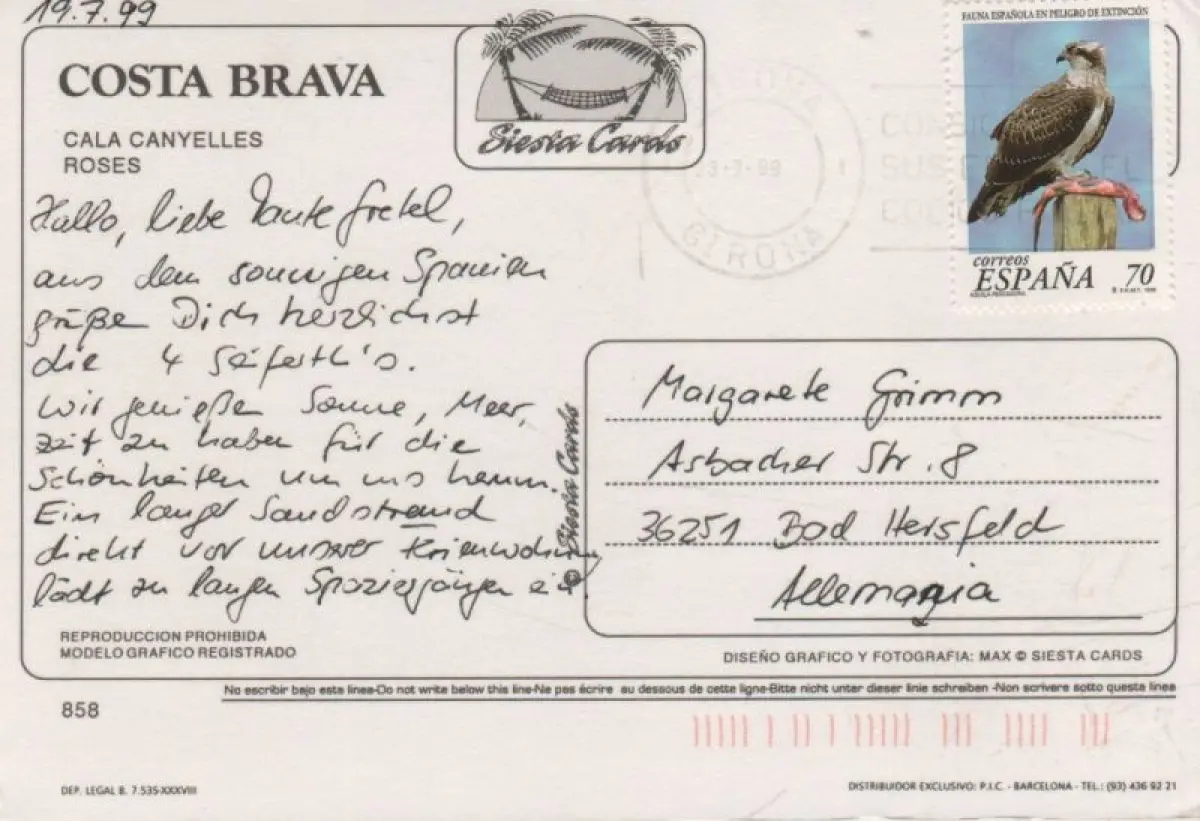 19.7.99
COSTA BRAVA
CALA CANYELLES
ROSES
Siesta Cards
Hallo, liebe Tante Gretel,
aus dem sonnigen Spanien
grüßen Dich herzlichst
die 4 Seiferth's.
Wir genießen Sonne, Meer,
Zeit zu haben für die
Schönheiten um uns herum.
Ein langer Sandstrand
direkt vor unserer Ferienwohnung
lädt zu langen Spaziergängen ein.
© Siesta Cards
FAUNA ESPAÑOLA EN PELIGRO DE EXTINCIÓN
correos
ESPAÑA 70
3-7-99
GIRONA
Margarete Grimm
Asbacher Str. 8
36251 Bad Hersfeld
Allemagnia
REPRODUCCION PROHIBIDA
MODELO GRAFICO REGISTRADO
DISEÑO GRAFICO Y FOTOGRAFIA: MAX © SIESTA CARDS
No escribir bajo esta linea-Do not write below this line-Ne pas écrire au dessous de cette ligne-Bitte nicht unter dieser linie schreiben -Non scrivere sotto questa linea
858
DEP. LEGAL B. 7.535-XXXVIII
DISTRIBUIDOR EXCLUSIVO: P.I.C. - BARCELONA - TEL.: (93) 436 92 21